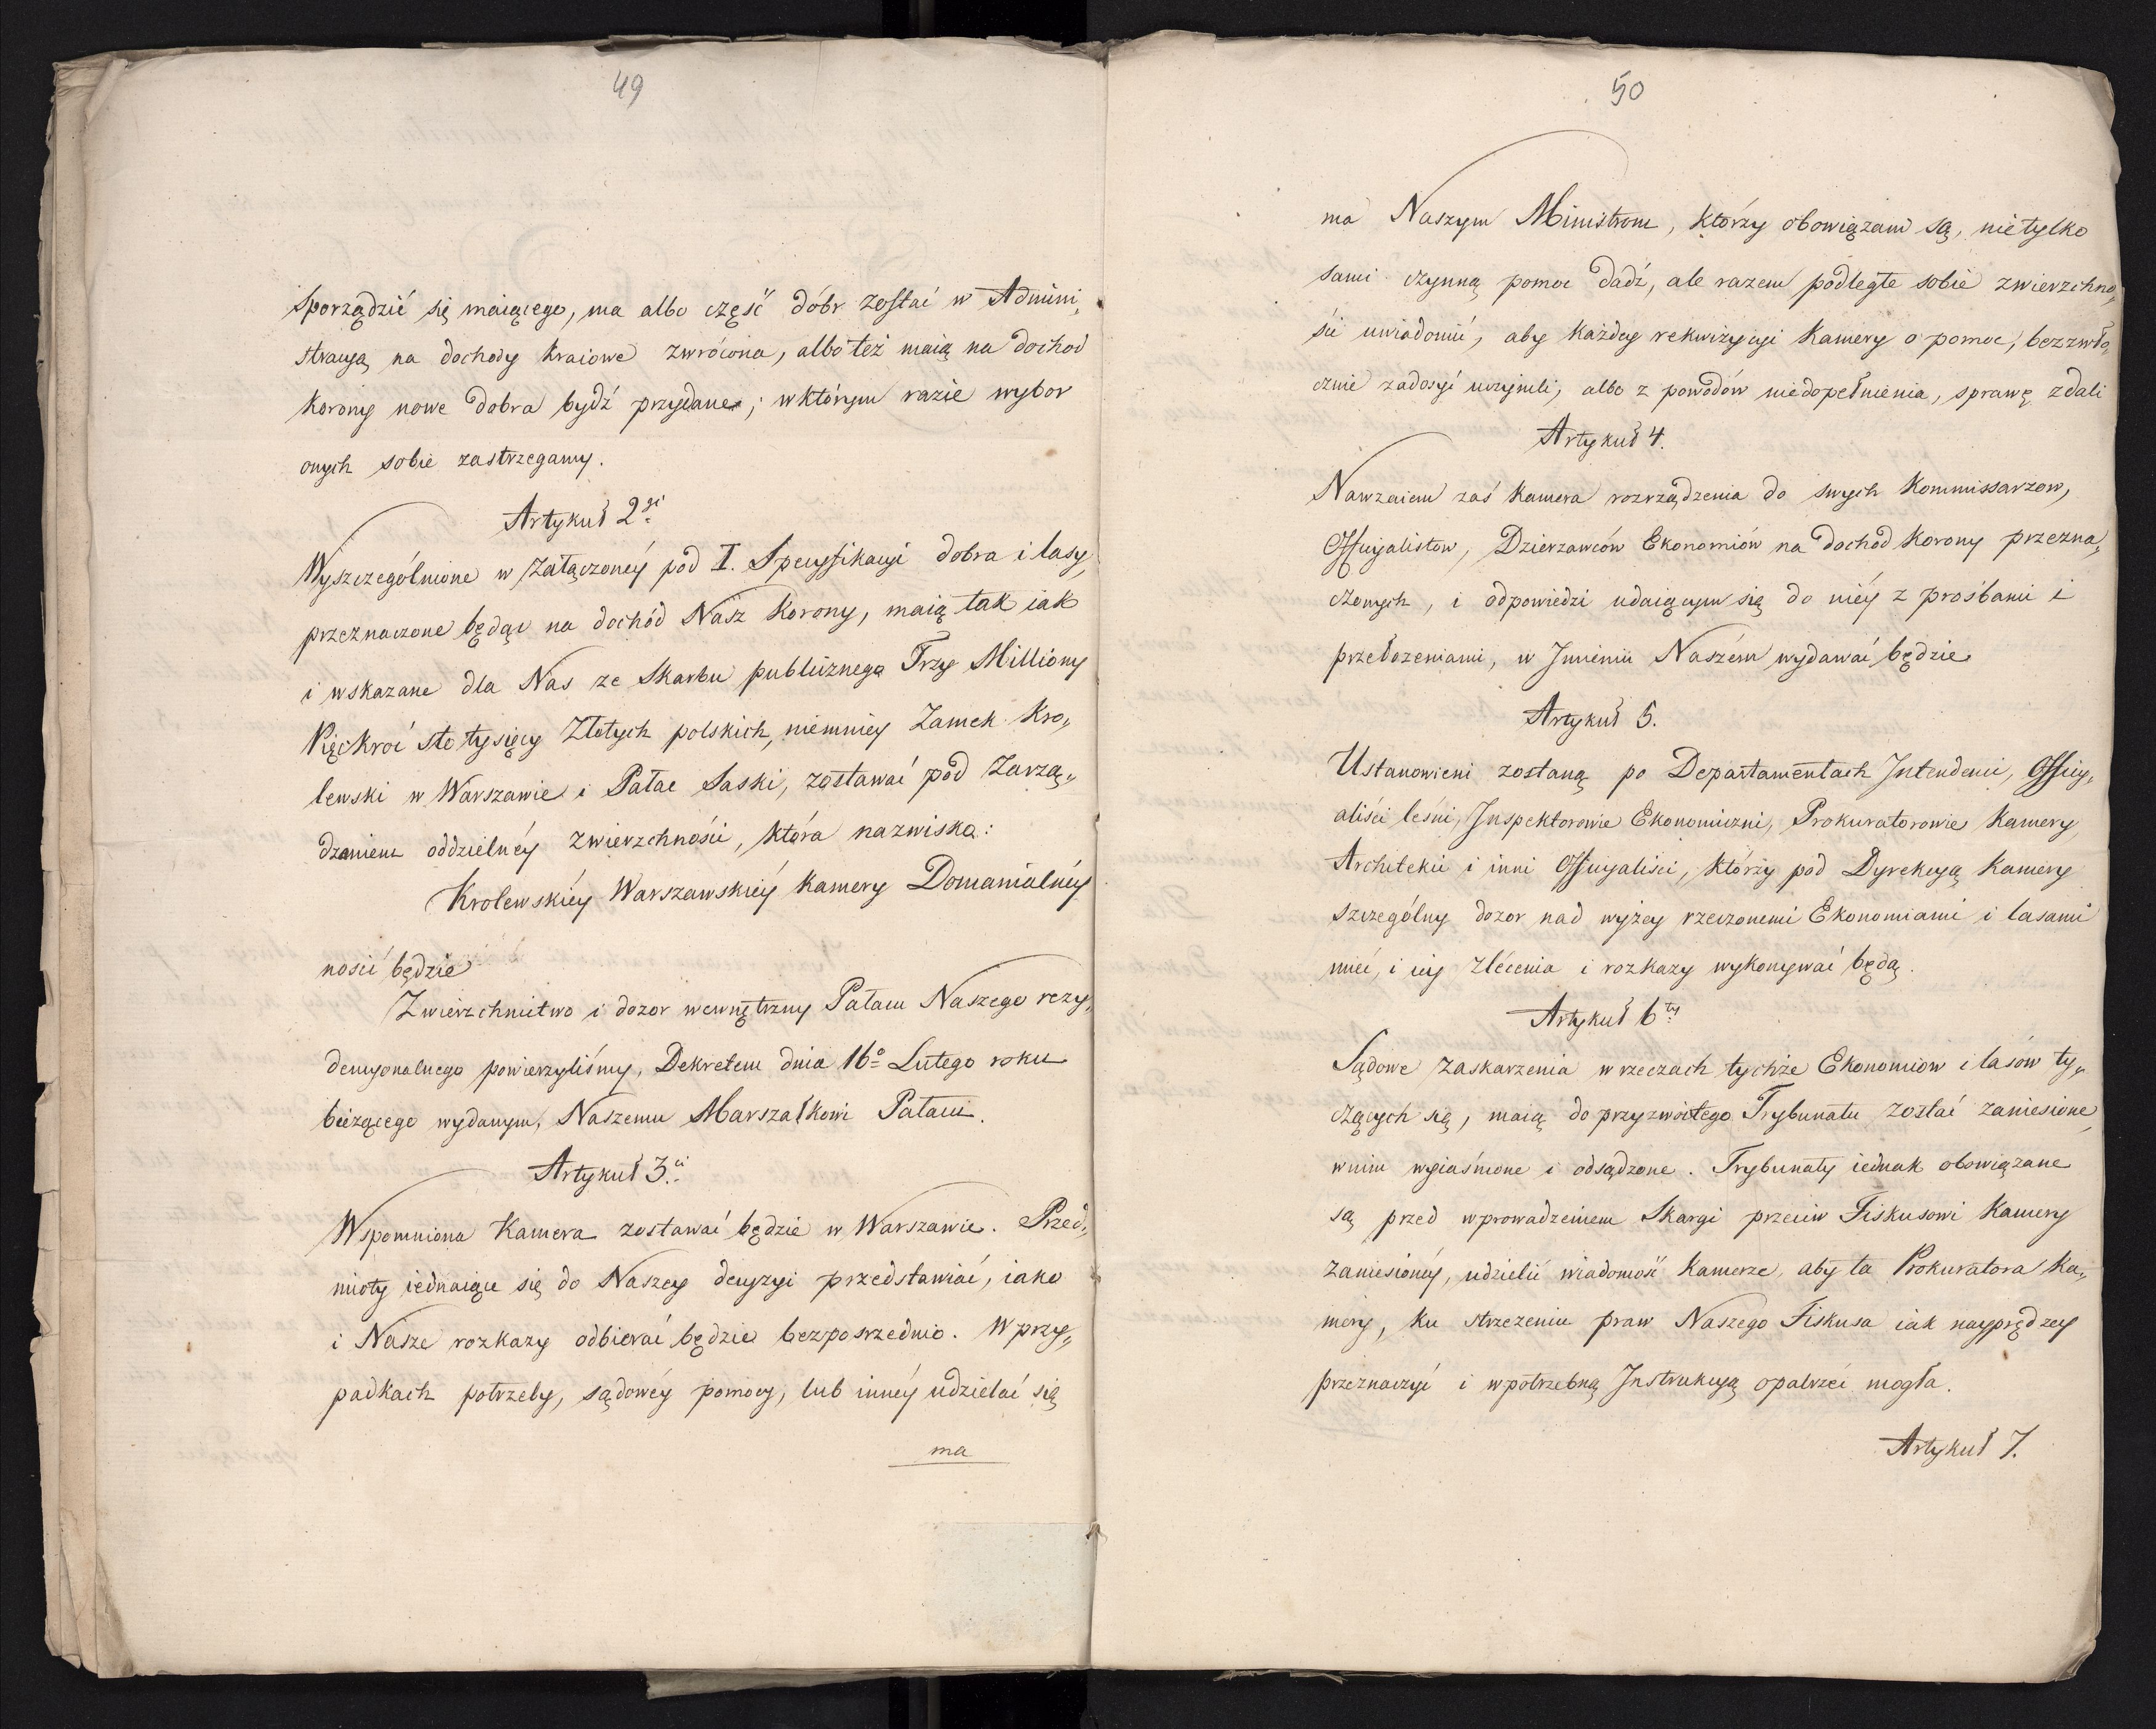 49
sporządzić się maiącego, ma albo część dóbr zostać w Admini„
stracyą na dochody kraiowe zwrócona, albo też maią na dochod
Korony nowe dobra bydź przydane; w którym razie wybor
onych sobie zastrzegamy.
Artykuł 2gi
Wyszczególnione w załączonéy pod I. Specyfikacyi dobra i lasy,
przeznaczone będąc na dochód Nasz Korony, maią tak iak
i wskazane dla Nas ze Skarbu publicznego Trzy Milliony
Pięckroć sto tysięcy Złotych polskich, niemniey Zamek Kro„
lewski w Warszawie i Pałac Saski, zostawać pod Zarzą„
dzaniem oddzielnéy zwierzchności, która nazwisko:
Krolewskiéy Warszawskiéy Kamery Domanialnéy
nosić będzie
Zwierzchnictwo i dozor wewnętrzny Pałacu Naszego rezy„
dencyonalnego powierzyliśmy, Dekretem dnia 16o Lutego roku
bieżącego wydanym, Naszemu Marszałkowi Pałacu.
Artykuł 3ci
Wspomniona Kamera zostawać będzie w Warszawie. Przed„
mioty iednaiące się do Naszey decyzyi przedstawiać, iako
i Nasze rozkazy odbierać będzie bezposrzednio. W przy„
padkach potrzeby, sądowéy pomocy, lub innéy udzielać się
ma
50
ma Naszym Ministrom, którzy obowiązani są, nie tylko
sami czynną pomoc dadź, ale razem podległe sobie zwierzchno„
ści uwiadomić, aby każdey rekwizycyi Kamery o pomoc, bezzwło„
cznie zadosyć uczynili, albo z powodów niedopełnienia, sprawę zdali
Artykuł 4.
Nawzaiem zaś Kamera rozrządzenia do swych Kommissarzow,
Officyalistow, Dzierzawców Ekonomiów na dochod Korony przezna„
czonych, i odpowiedzi udaiącym się do niéy z prośbami i
przełozeniami, w Imieniu Naszém wydawać będzie
Artykuł 5.
Ustanowieni zostaną po Departamentach Intendenci, Officy„
aliści leśni, Inspektorowie Ekonomiczni, Prokuratorowie Kamery,
Architekci i inni Officyaliści, którzy pod Dyrekcyą Kamery
szczególny dozor nad wyżey rzeczonemi Ekonomiami i lasami
mieć, i iey zlécenia i rozkazy wykonywać będą.
Artykuł 6ty
Sądowe zaskarzenia w rzeczach tychże Ekonomiow i lasów ty„
czących się, maią do przyzwoitego Trybunału zostać zaniesione,
w nim wyiaśnione i odsądzone. Trybunały iednak obowiązane
są przed wprowadzeniem Skargi przeciw Fiskusowi Kamery
zaniesionéy, udzielić wiadomość Kamerze, aby ta Prokuratora Ka„
mery, ku strzezeniu praw Naszego Fiskusa iak nayprędzey
przeznaczyć i w potrzebną Instrukcyą opatrzeć mogła.
Artykuł 7.